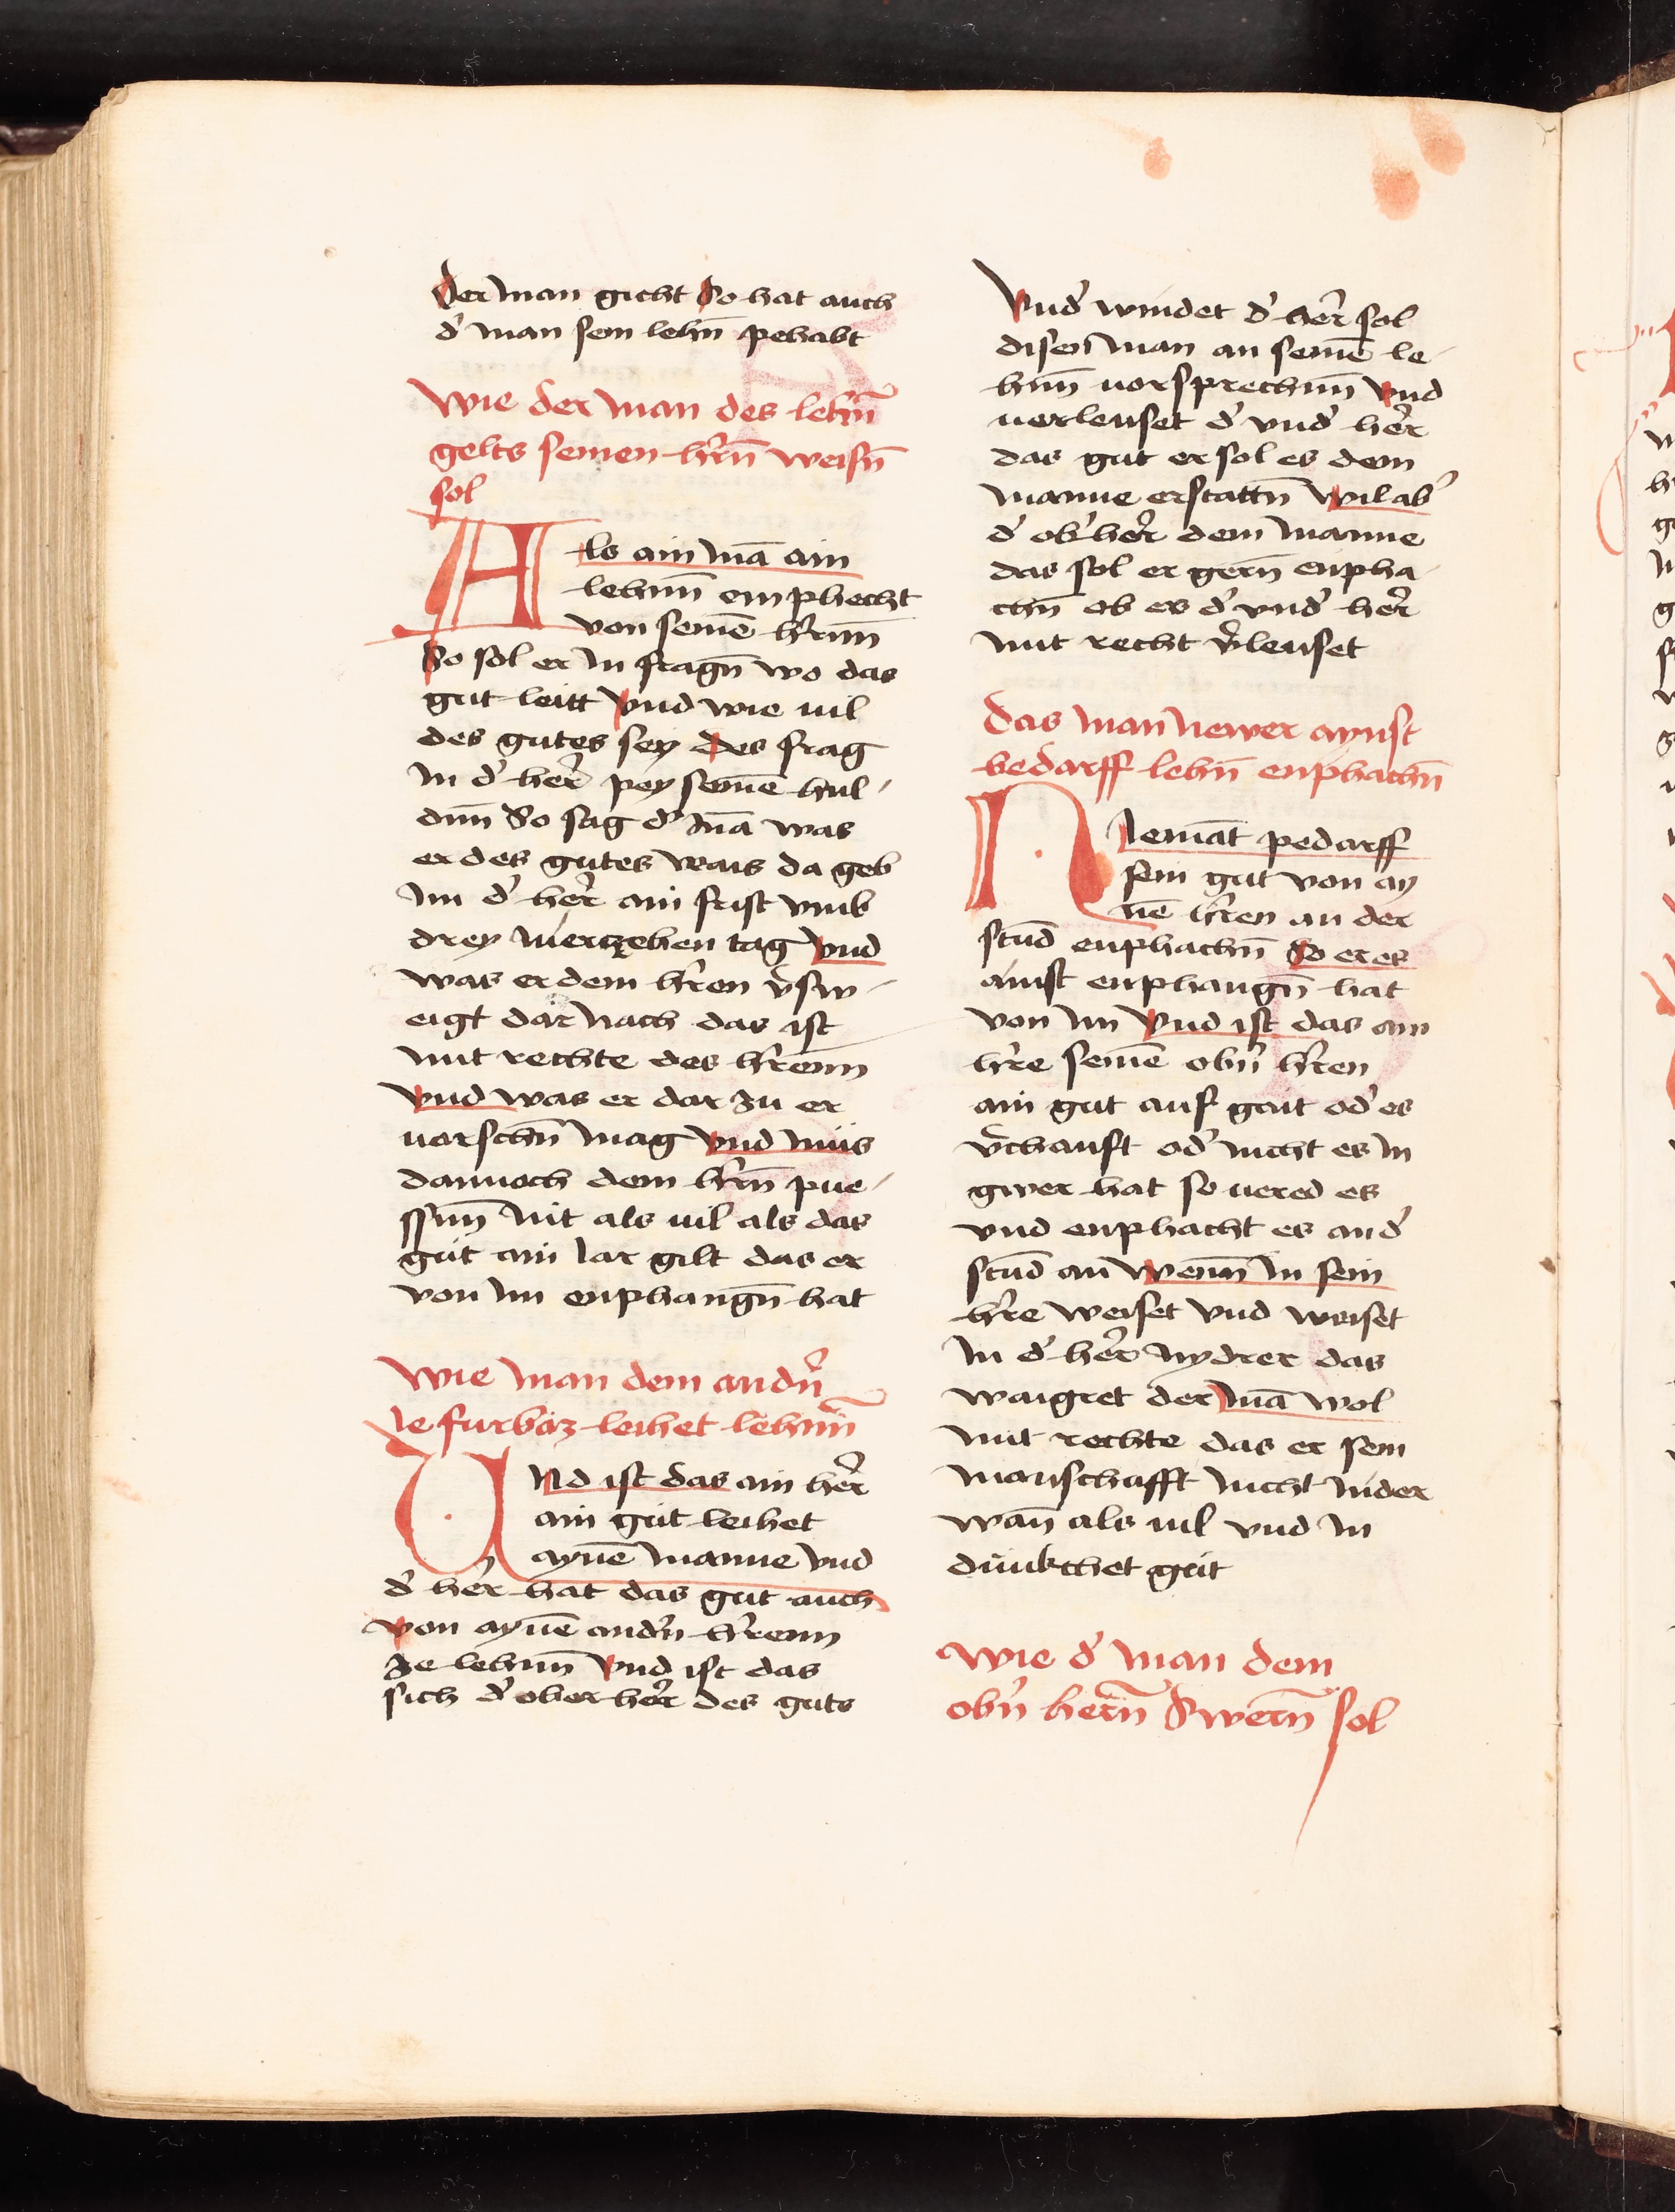 der man gicht So hat auch
d' man sein lehn̄ pehabt
Wie der man des lehn̄
gelts seinen hr̄n weisn̄
sol
Als ain mā ain
lehnn̄ emphecht
von seinē hr̄nn̄
So sol er in fragn̄ wo das
gut leitt vnd wie uil
des gutes sey Des frag
in d' her̄ pey seinē hul
dnn̄ So sag d' mā was
er des gutes wais da geb
im d' her̄ ain frist vmb
drey viertzehen tag vnd
was er dem hr̄en v̄sw
eigt dar nach das ist
mit rechte des hr̄enn
vnd was er dar zu er
uorschn̄ mag vnd müs
dannoch dem hr̄n pue
ssnn̄ mit als uil als das
gut ain iar gilt das er
von im enphangn̄ hat
Wie man dem andn̄
ie furbaz leihet lehnn̄
Und ist das ain her̄
ain gut leihet
aynē manne vnd
d' her̄ hat das gut auch
von aynē andn̄ hr̄enn
ze lehnn̄ vnd ist das
sich d' ober her̄ des guts
vnd' windet d' her̄ sol
disen man an seinē le
hnn̄ uorsprechnn̄ vnd
uerleuset d' vnd' her̄
das gut er sol es dem
manne erstattn̄ wil ab'
d' ob' her̄ dem manne
das sol er gern̄ enpha
chn̄ ob es d' vnd' her̄
mit recht v̄leuset
Das man newer aynst
bedarff lehn̄ enphachn̄
Niemāt pedarff
sein gut von ay
nē hr̄en an der
stund enphachn̄ So er es
ainst enphangn̄ hat
von im vnd ist das ain
hr̄e seinē obn̄ hr̄en
ain gut auf gait od' es
v̄chauft od' nicht es in
gwer hat so uered es
vnd enphacht es and'
stund an wenn̄ in sein
hr̄e weiset vnd weiset
in d' her̄ nydrer das
waigret der mā wol
mit rechte das er sein
manschafft nicht nider
wan̄ als uil vnd in
dunkchet gut
Wie d' man dem
obn̄ hern̄ Swern̄ sol